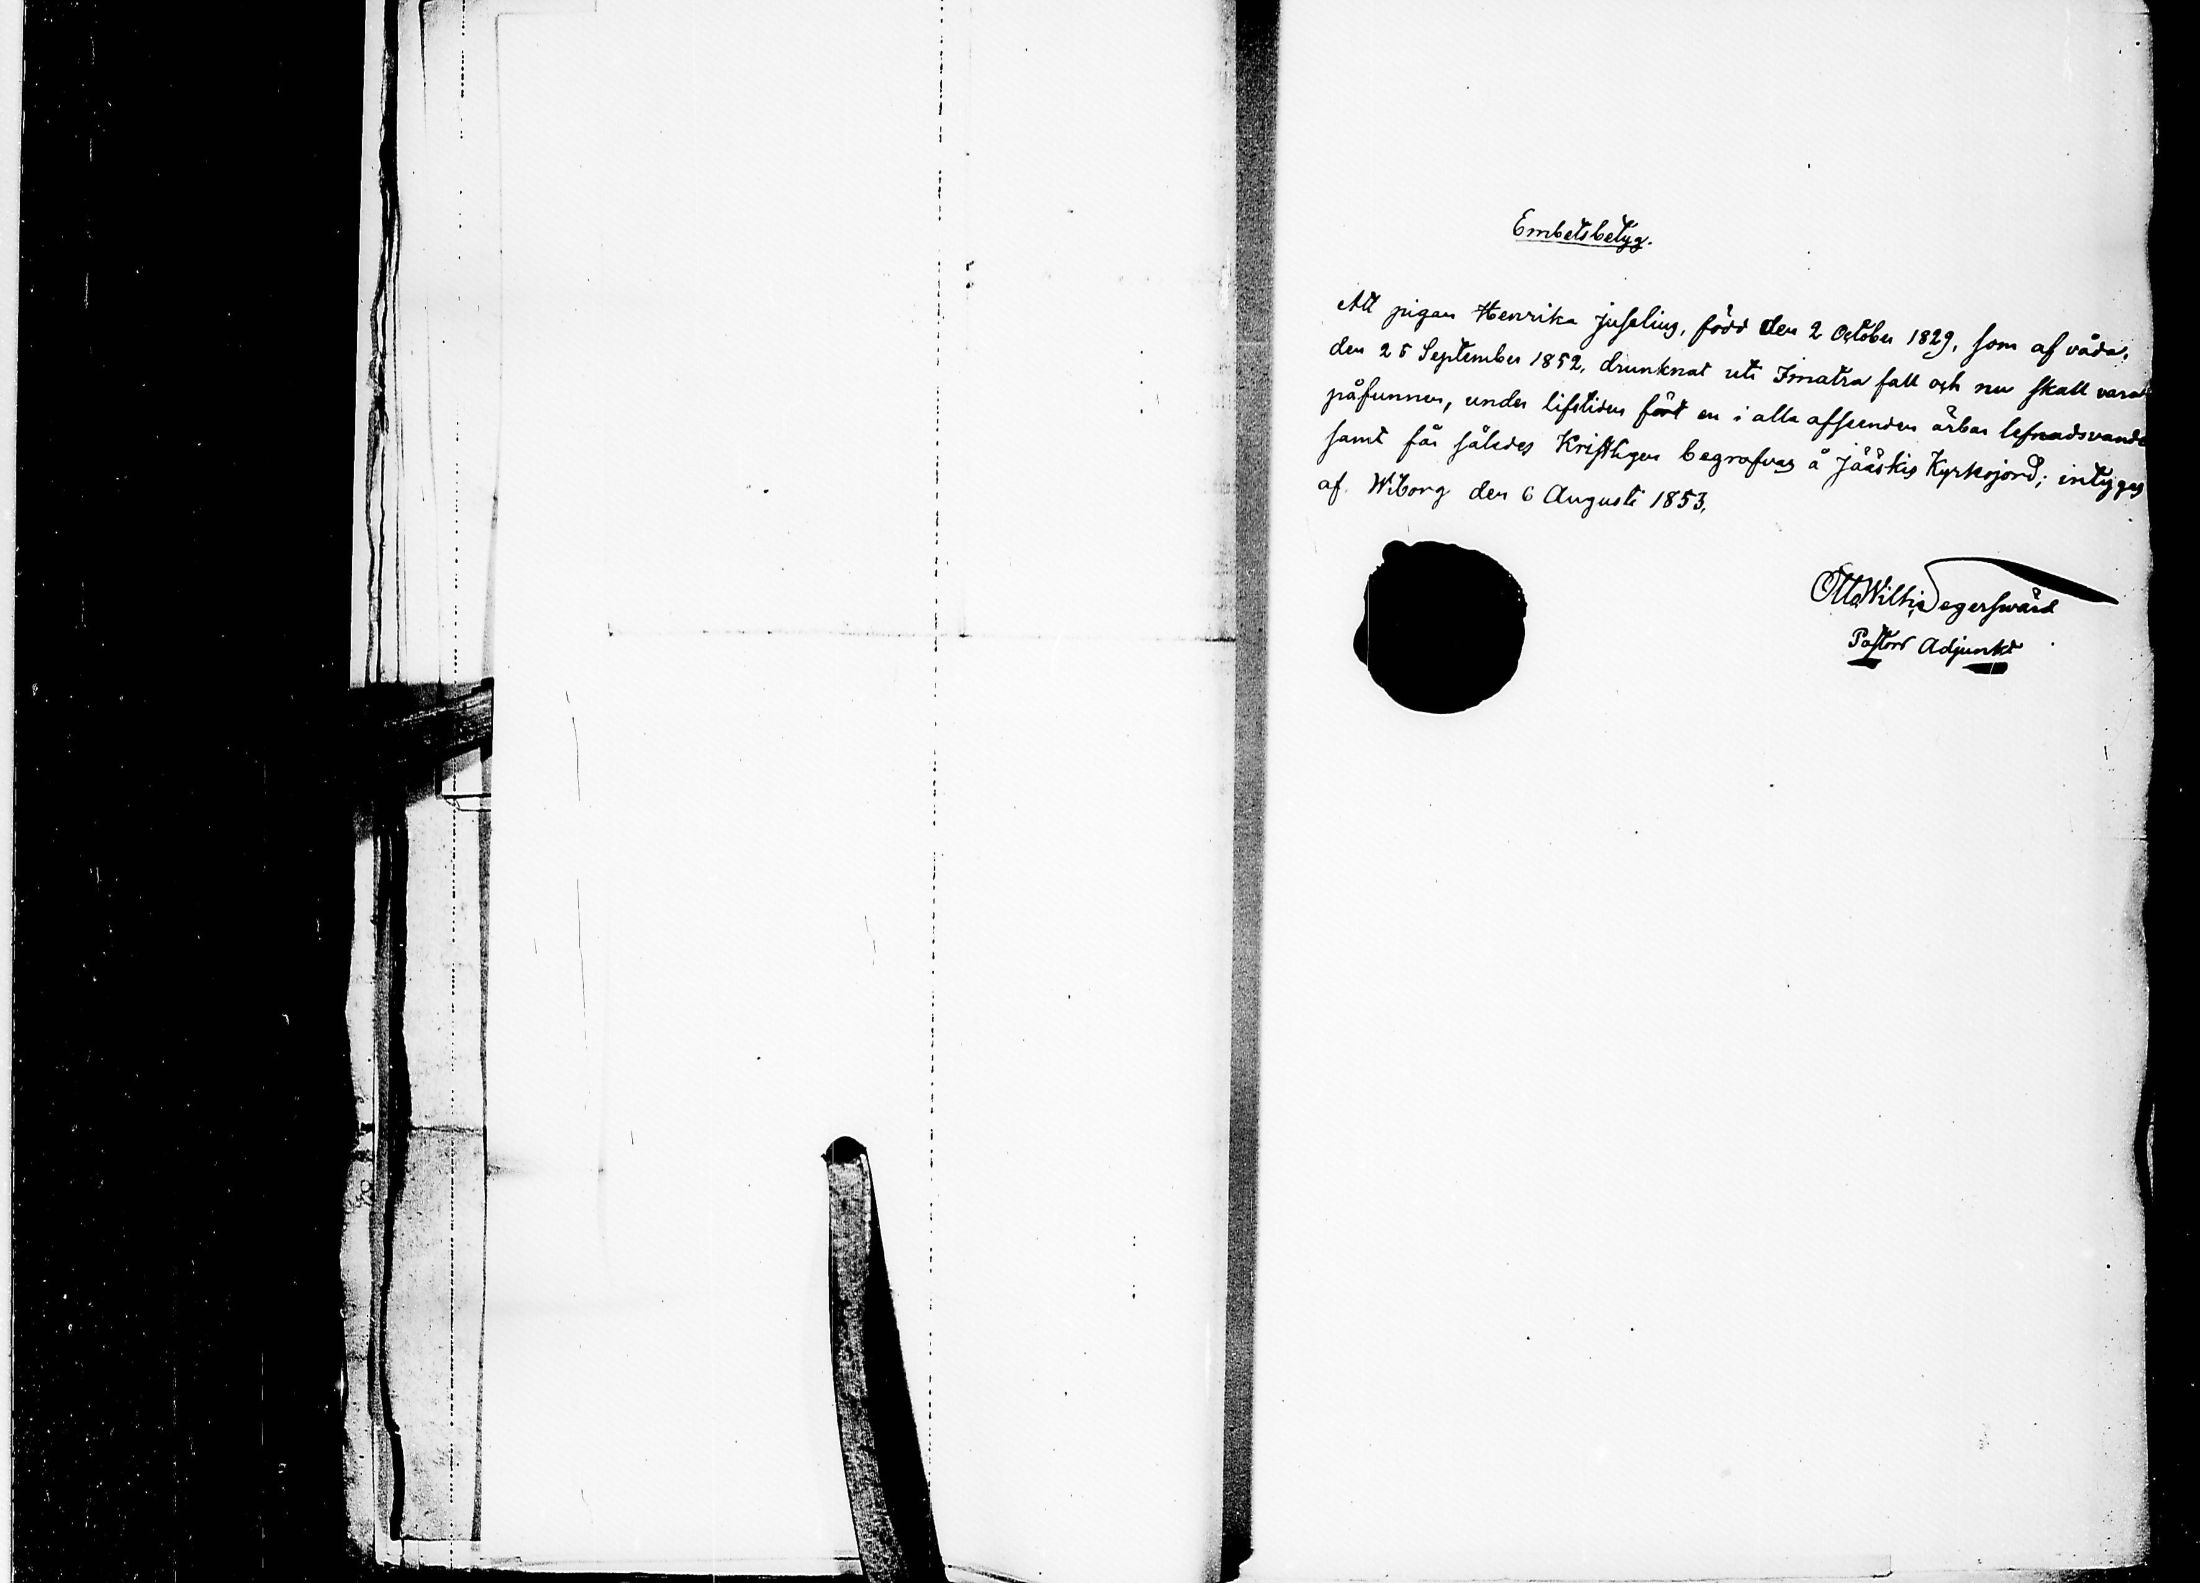 Embetsbetyg.
Att pigan Henrika Juselius, född den 2 October 1829, som af våda,
den 25 September 1852, drunknat uti Imatra fall och nu skall vara
påfunnen, under lifstiden fört en i alla afseenden ärbar lefnadsvande
samt får således Kristligen begrafvas å Jääskis Kyrkojord; intygas
af Wiborg den 6 Augusti 1853.
Otto Wilh: Segerswärd
Pastors Adjunkt